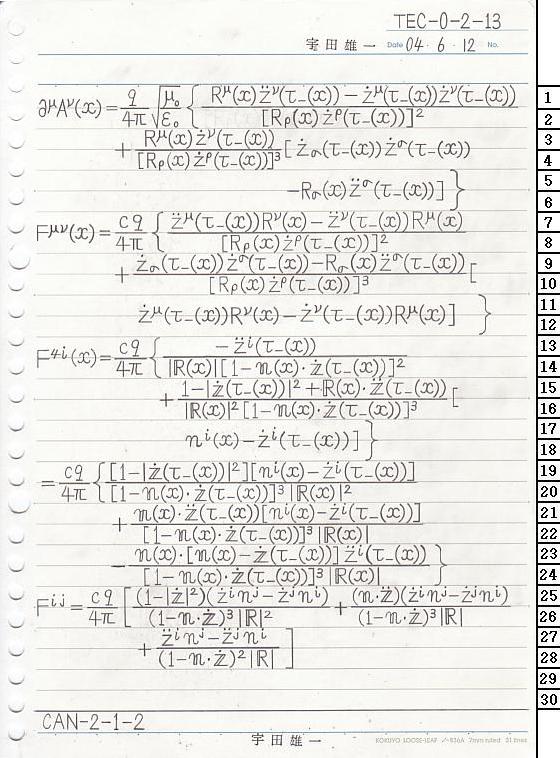 TEC-0-2-13
宇田雄一 Date 04・6・12 No.
∂^μA^ν(x) = q/4π √(μ₀/ε₀) { R^μ(x)z̈^ν(τ_(x)) − ż^μ(τ_(x))ż^ν(τ_(x)) / [R_ρ(x)ż^ρ(τ_(x))]²
+ R^μ(x)ż^ν(τ_(x)) / [R_ρ(x)ż^ρ(τ_(x))]³ [ ż_σ(τ_(x))ż^σ(τ_(x))
−R_σ(x)z̈^σ(τ_(x))] }
F^μν(x) = cq/4π { z̈^μ(τ_(x))R^ν(x) − z̈^ν(τ_(x))R^μ(x) / [R_ρ(x)ż^ρ(τ_(x))]²
+ ż_σ(τ_(x))ż^σ(τ_(x)) − R_σ(x)z̈^σ(τ_(x)) / [R_ρ(x)ż^ρ(τ_(x))]³ [
ż^μ(τ_(x))R^ν(x) − ż^ν(τ_(x))R^μ(x)] }
F^4i(x) = cq/4π { −z̈^i(τ_(x)) / |ℝ(x)|[1−𝕟(x)·ż(τ_(x))]²
+ 1−|ż(τ_(x))|² + ℝ(x)·z̈(τ_(x)) / |ℝ(x)|² [1−𝕟(x)·ż(τ_(x))]³ [
n^i(x) − ż^i(τ_(x))] }
= cq/4π { [1−|ż(τ_(x))|²][n^i(x) − ż^i(τ_(x))] / [1−𝕟(x)·ż(τ_(x))]³ |ℝ(x)|²
+ 𝕟(x)·z̈(τ_(x))[n^i(x) − ż^i(τ_(x))] / [1−𝕟(x)·ż(τ_(x))]³ |ℝ(x)|
− 𝕟(x)·[𝕟(x) − ż(τ_(x))] z̈^i(τ_(x)) / [1−𝕟(x)·ż(τ_(x))]³ |ℝ(x)| }
F^ij = cq/4π [ (1−|ż|²)(ż^i n^j − ż^j n^i) / (1−𝕟·ż)³ |ℝ|² + (𝕟·z̈)(ż^i n^j − ż^j n^i) / (1−𝕟·ż)³ |ℝ|
+ z̈^i n^j − z̈^j n^i / (1−𝕟·ż)² |ℝ| ]
CAN-2-1-2
宇田雄一
KOKUYO LOOSE-LEAF ノ-836A 7mm ruled 31 lines
1
2
3
4
5
6
7
8
9
10
11
12
13
14
15
16
17
18
19
20
21
22
23
24
25
26
27
28
29
30